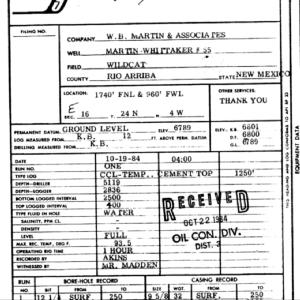 FILING NO.
COMPANY W.B. MARTIN & ASSOCIATES
WELL MARTIN-WHITTAKER # 55
FIELD WILDCAT
COUNTY RIO ARRIBA STATE NEW MEXICO
LOCATION: 1740' FNL & 960' FWL
OTHER SERVICES:
THANK YOU
SEC. 16 24 N 4 W
PERMANENT DATUM: GROUND LEVEL ELEV. 6789 ELEV.: K.B. 6801
LOG MEASURED FROM K.B. 12 FT. ABOVE PERM. DATUM D.T. 6800
DRILLING MEASURED FROM K.B. G.L. 6789
DATE 10-19-84 04:00
RUN NO. ONE
TYPE LOG CCL-TEMP.. CEMENT TOP 1250'
DEPTH-DRILLER 5119
DEPTH-LOGGER 2836
BOTTOM LOGGED INTERVAL 2500
TOP LOGGED INTERVAL 400
TYPE FLUID IN HOLE WATER
SALINITY, PPM CL.
DENSITY
LEVEL FULL
MAX. REC. TEMP., DEG F. 93.5
OPERATING RIG TIME 1 HOUR
RECORDED BY AKINS
WITNESSED BY MR. MADDEN
RECEIVED
OCT 22 1984
OIL CON. DIV.
DIST. 3
RUN BORE-HOLE RECORD CASING RECORD
NO. BIT FROM TO SIZE WGT. FROM TO
12 1/4 SURF. 250 9 5/8 32 SURF. 250
EQUIPMENT DATA